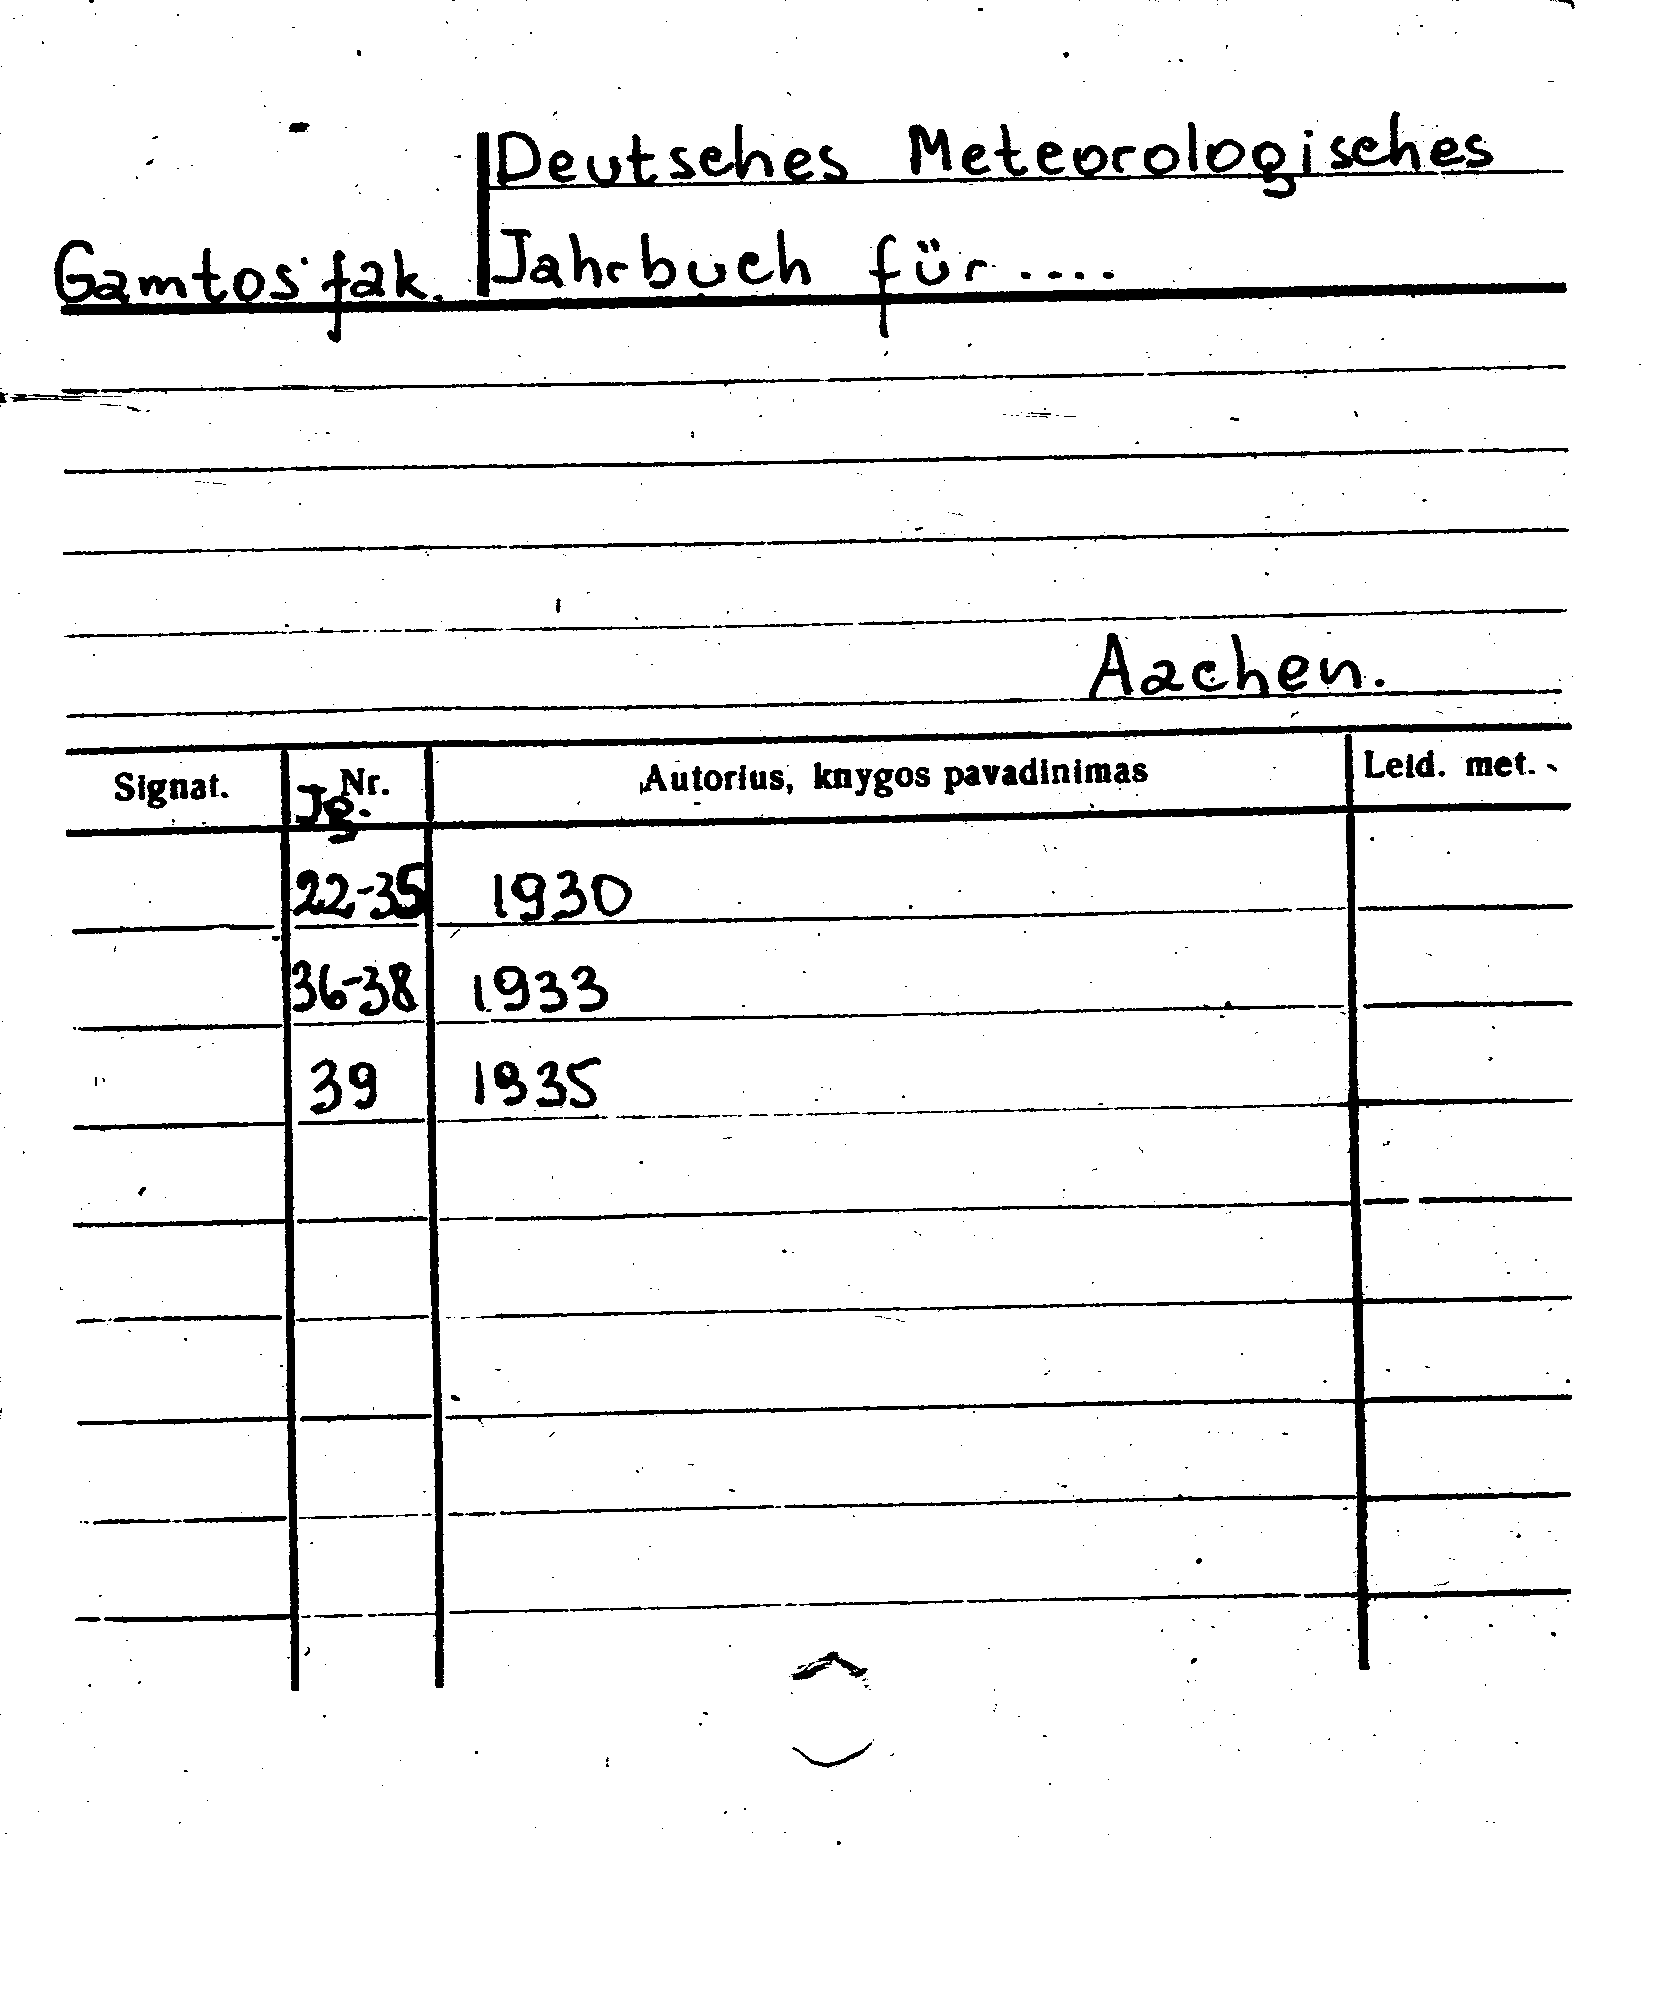 Deutsches Meteorologisches
Gamtos fak. Jahrbuch für ....
Aachen.
Signat. Nr. Autorius, knygos pavadinimas Leid. met.
Jg.
22-35 1930
36-38 1933
39 1935